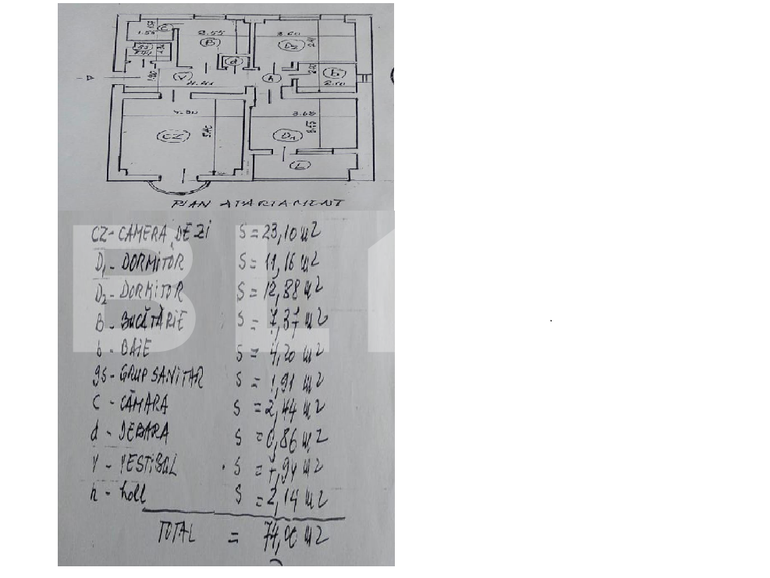 C
1.55
2.55
B
3.60
D2
d
V
4.41
h
b
2.10
4.30
3.60
CZ
D1
L
PLAN APARTAMENT
CZ - CAMERA DE ZI S = 23,10 m2
D1 - DORMITOR S = 11,16 m2
D2 - DORMITOR S = 12,88 m2
B - BUCĂTĂRIE S = 7,37 m2
b - BAIE S = 4,20 m2
gs - GRUP SANITAR S = 1,91 m2
C - CĂMARA S = 2,44 m2
d - DEBARA S = 0,86 m2
V - VESTIBUL S = 7,94 m2
h - holl S = 2,14 m2
TOTAL = 74,00 m2